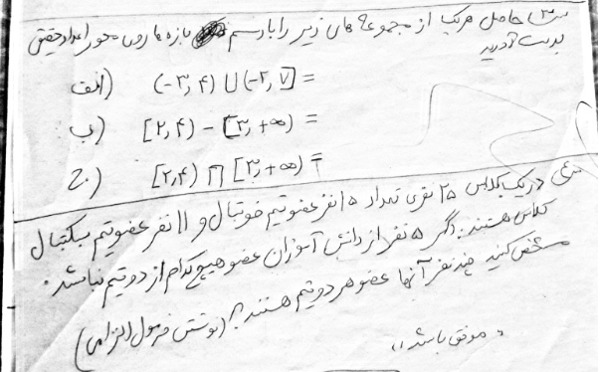 س۳) حاصل هریک از مجموعه های زیر را با رسم بازه ها روی محور اعداد حقیقی
بدست آورید
الف) (-۳,۴) ∪ (-۲,۷] =
ب) [۲,۴) - [۳,+∞) =
ج) [۲,۴) ∩ [۳,+∞) =
در یک کلاس ۲۵ نفری تعداد ۱۵ نفر عضو تیم فوتبال و ۱۱ نفر عضو تیم بسکتبال
کلاس هستند. اگر ۵ نفر از دانش آموزان عضو هیچ کدام از دو تیم نباشد.
مشخص کنید چند نفر آنها عضو هر دو تیم هستند؟ (نوشتن فرمول الزامی)
موفق باشید